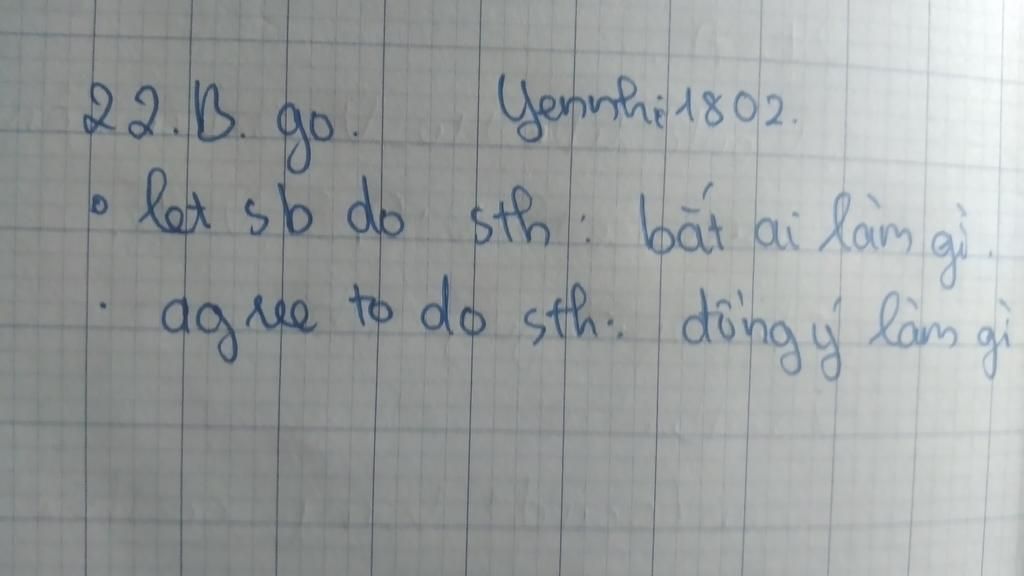 22. B. go. Yennhi1802.
let sb do sth: bắt ai làm gì.
agree to do sth: đồng ý làm gì